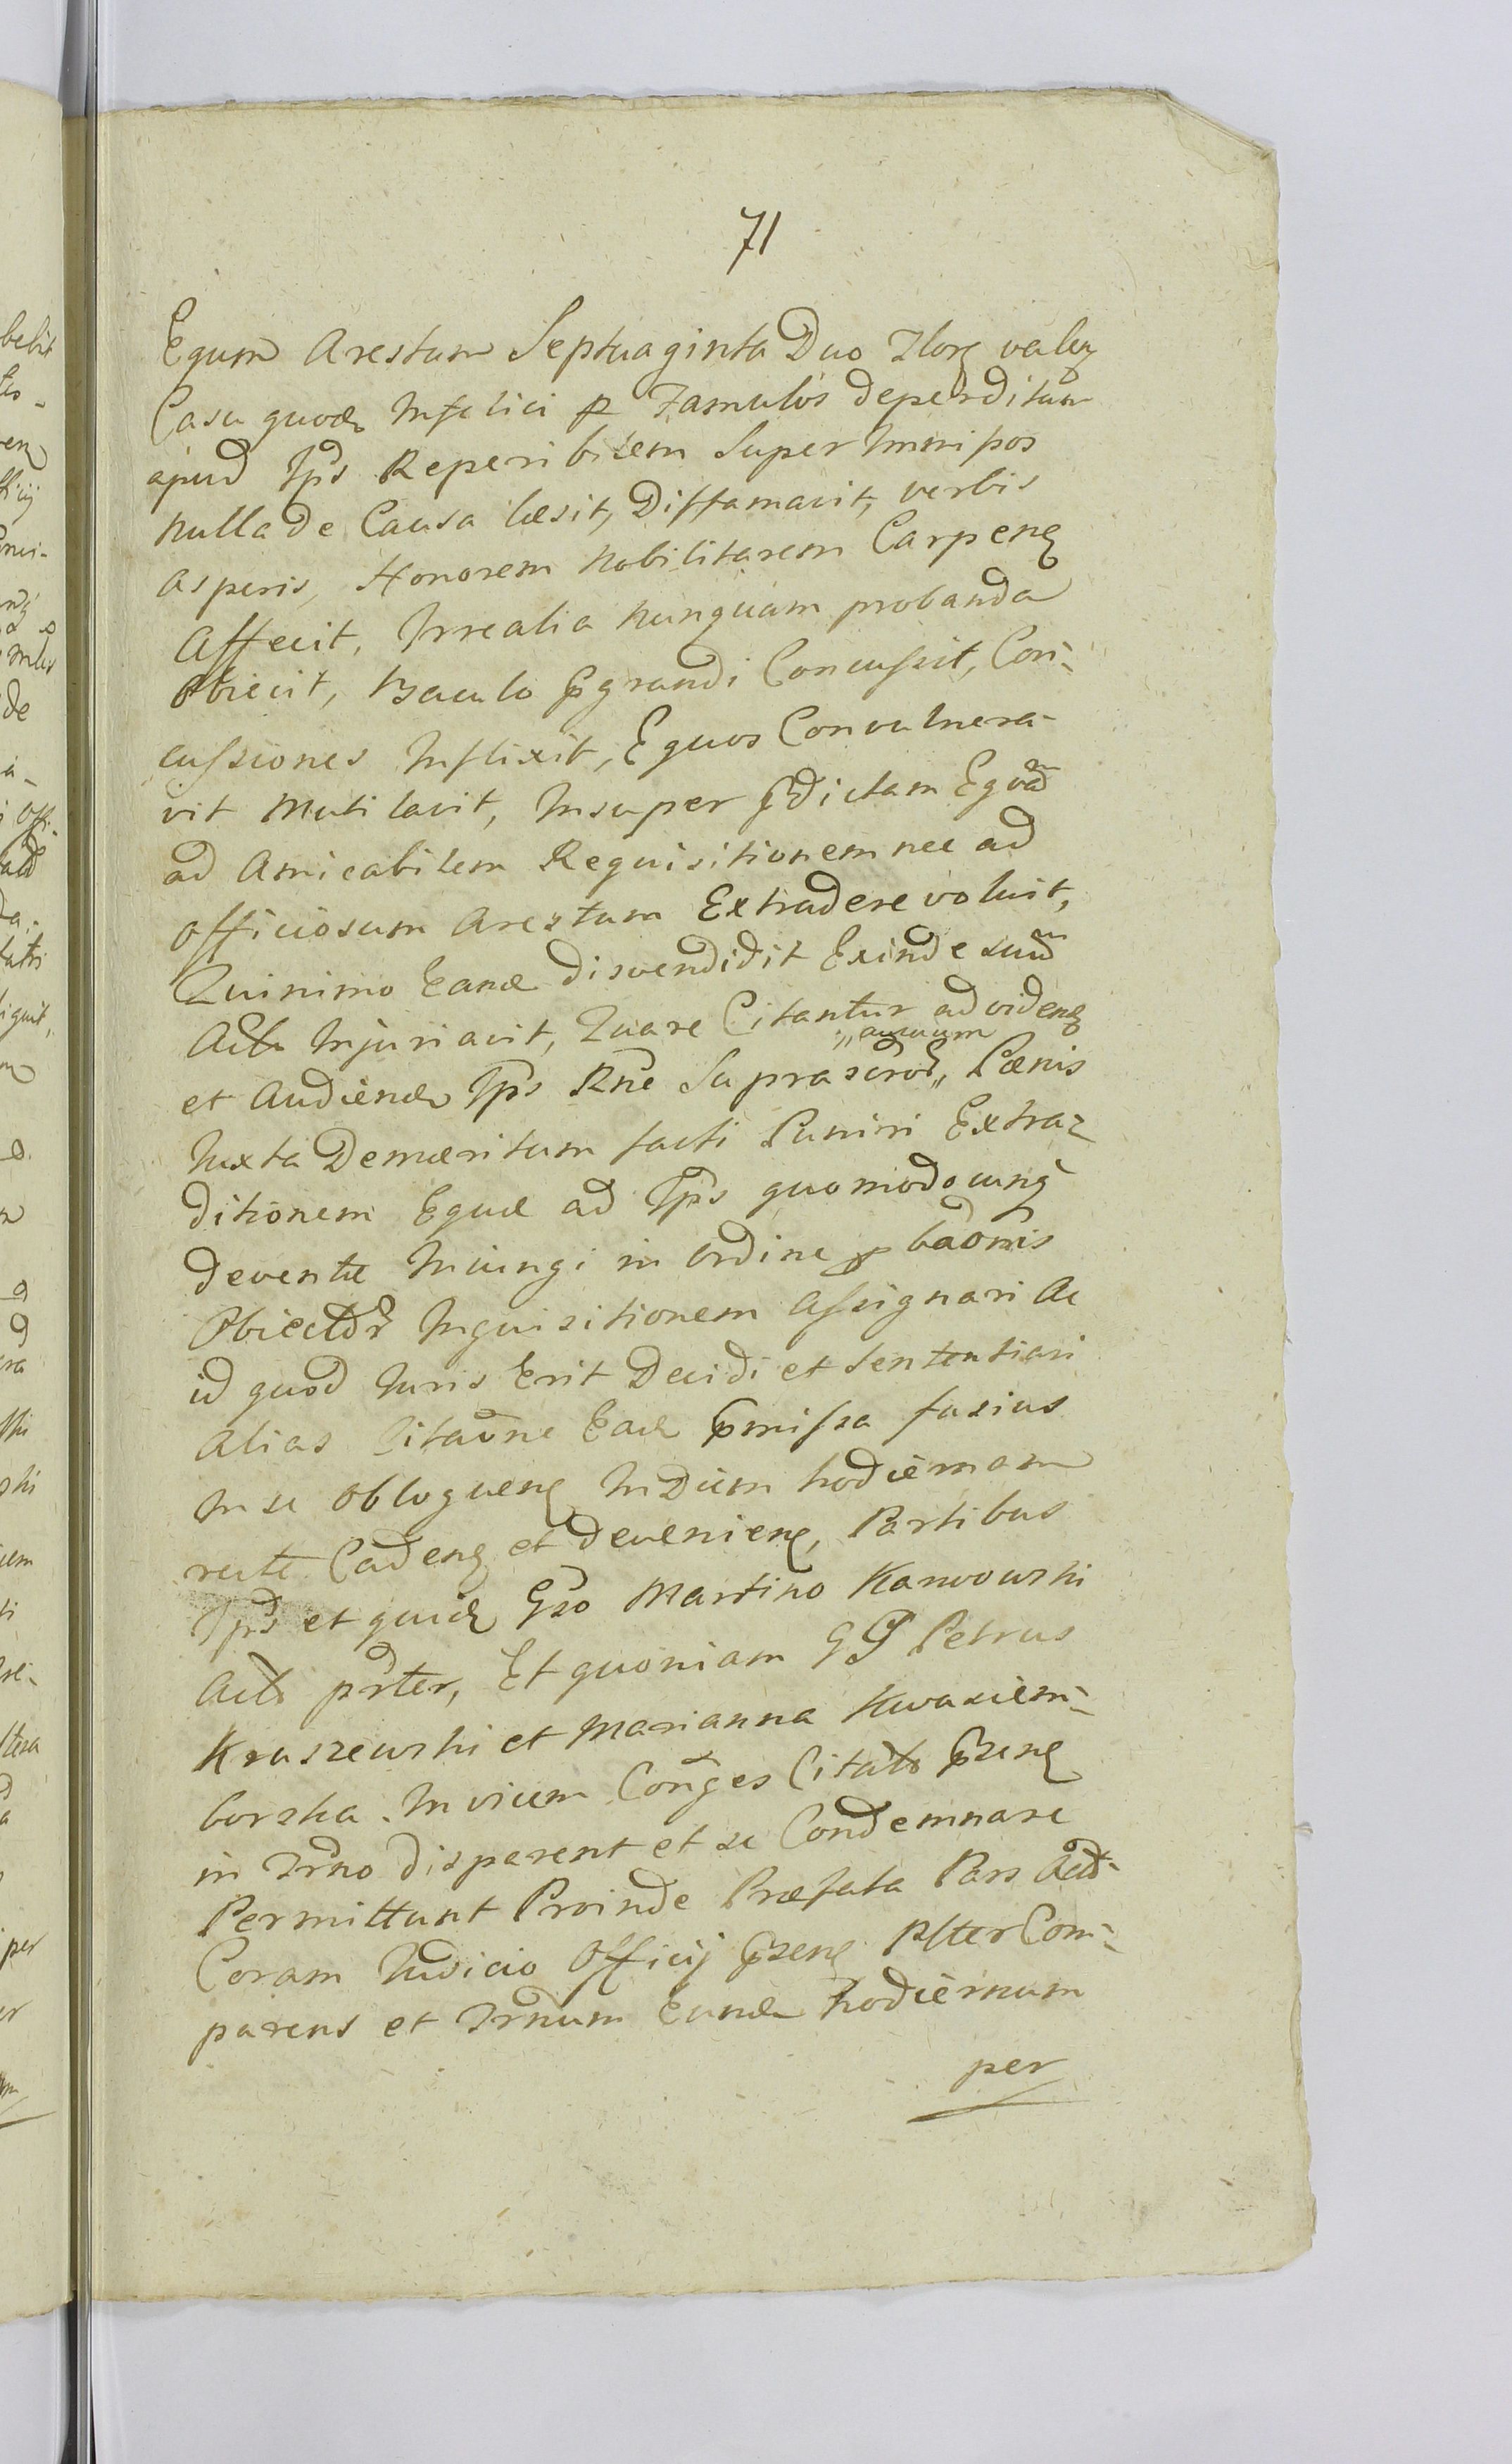 71
Equm Arestum Septuaginta Duo Flor valen
Casu quod Infelici p Famulos deperditum
apud Ips Reperibilem Super Immi pos
nulla de Causa læsit, Diffamavit, verbis
asperis, Honorem Nobilitarem Carpen
Affecit, Irrealia nunquam probanda
Obiecit, Baculo prgrandi Concussit, Con-
cussiones Inflixit, Equos Convulnera-
vit Mutilavit, Insuper prdictam Equam
ad Amicabilem Requisitionem nec ad
officiosum Arestum Extradere voluit,
Quinimo Eand disvendidit Exinde sum
Act Injuriavit, Quare Citantur ad viden
et Audiend Ips Rne Suprascrod „ auxuum „ Pænis
Iuxta Demæritum facti Puniri Extra-
ditionem Equæ ad Ips quomodocunq
devent Iniungi in Ordine p baomis
Obiector Inquisitionem Assignari Ac
id quod Iuris Erit Decidi et Sententiari
Alias Citaone Ead prmissa fusius
In se obloquen In Diem hodiernam
recte Caden et devenien, Partibus
Ips et quid Gso Martino Karwowski
Act prter, Et quoniam GG Petrus
Kraszewski et Marianna Kwasiem-
borska Invicem Conges Citati prsen
in Trno disparent et se Condemnare
Permittunt Proinde Præfata Pars Act
Coram Iudicio Officij prsen prter Com-
parens et Trnum Eund hodiernum
per